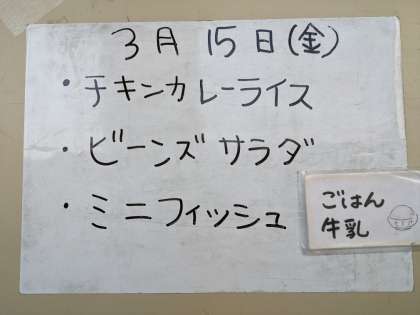 3月 15日(金)
・チキンカレーライス
・ビーンズサラダ
・ミニフィッシュ
ごはん
牛乳